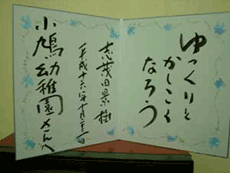 ゆっくりと
かしこく
なろう
志茂田景樹
平成十六年十月二十三日
小鳩幼稚園さんへ